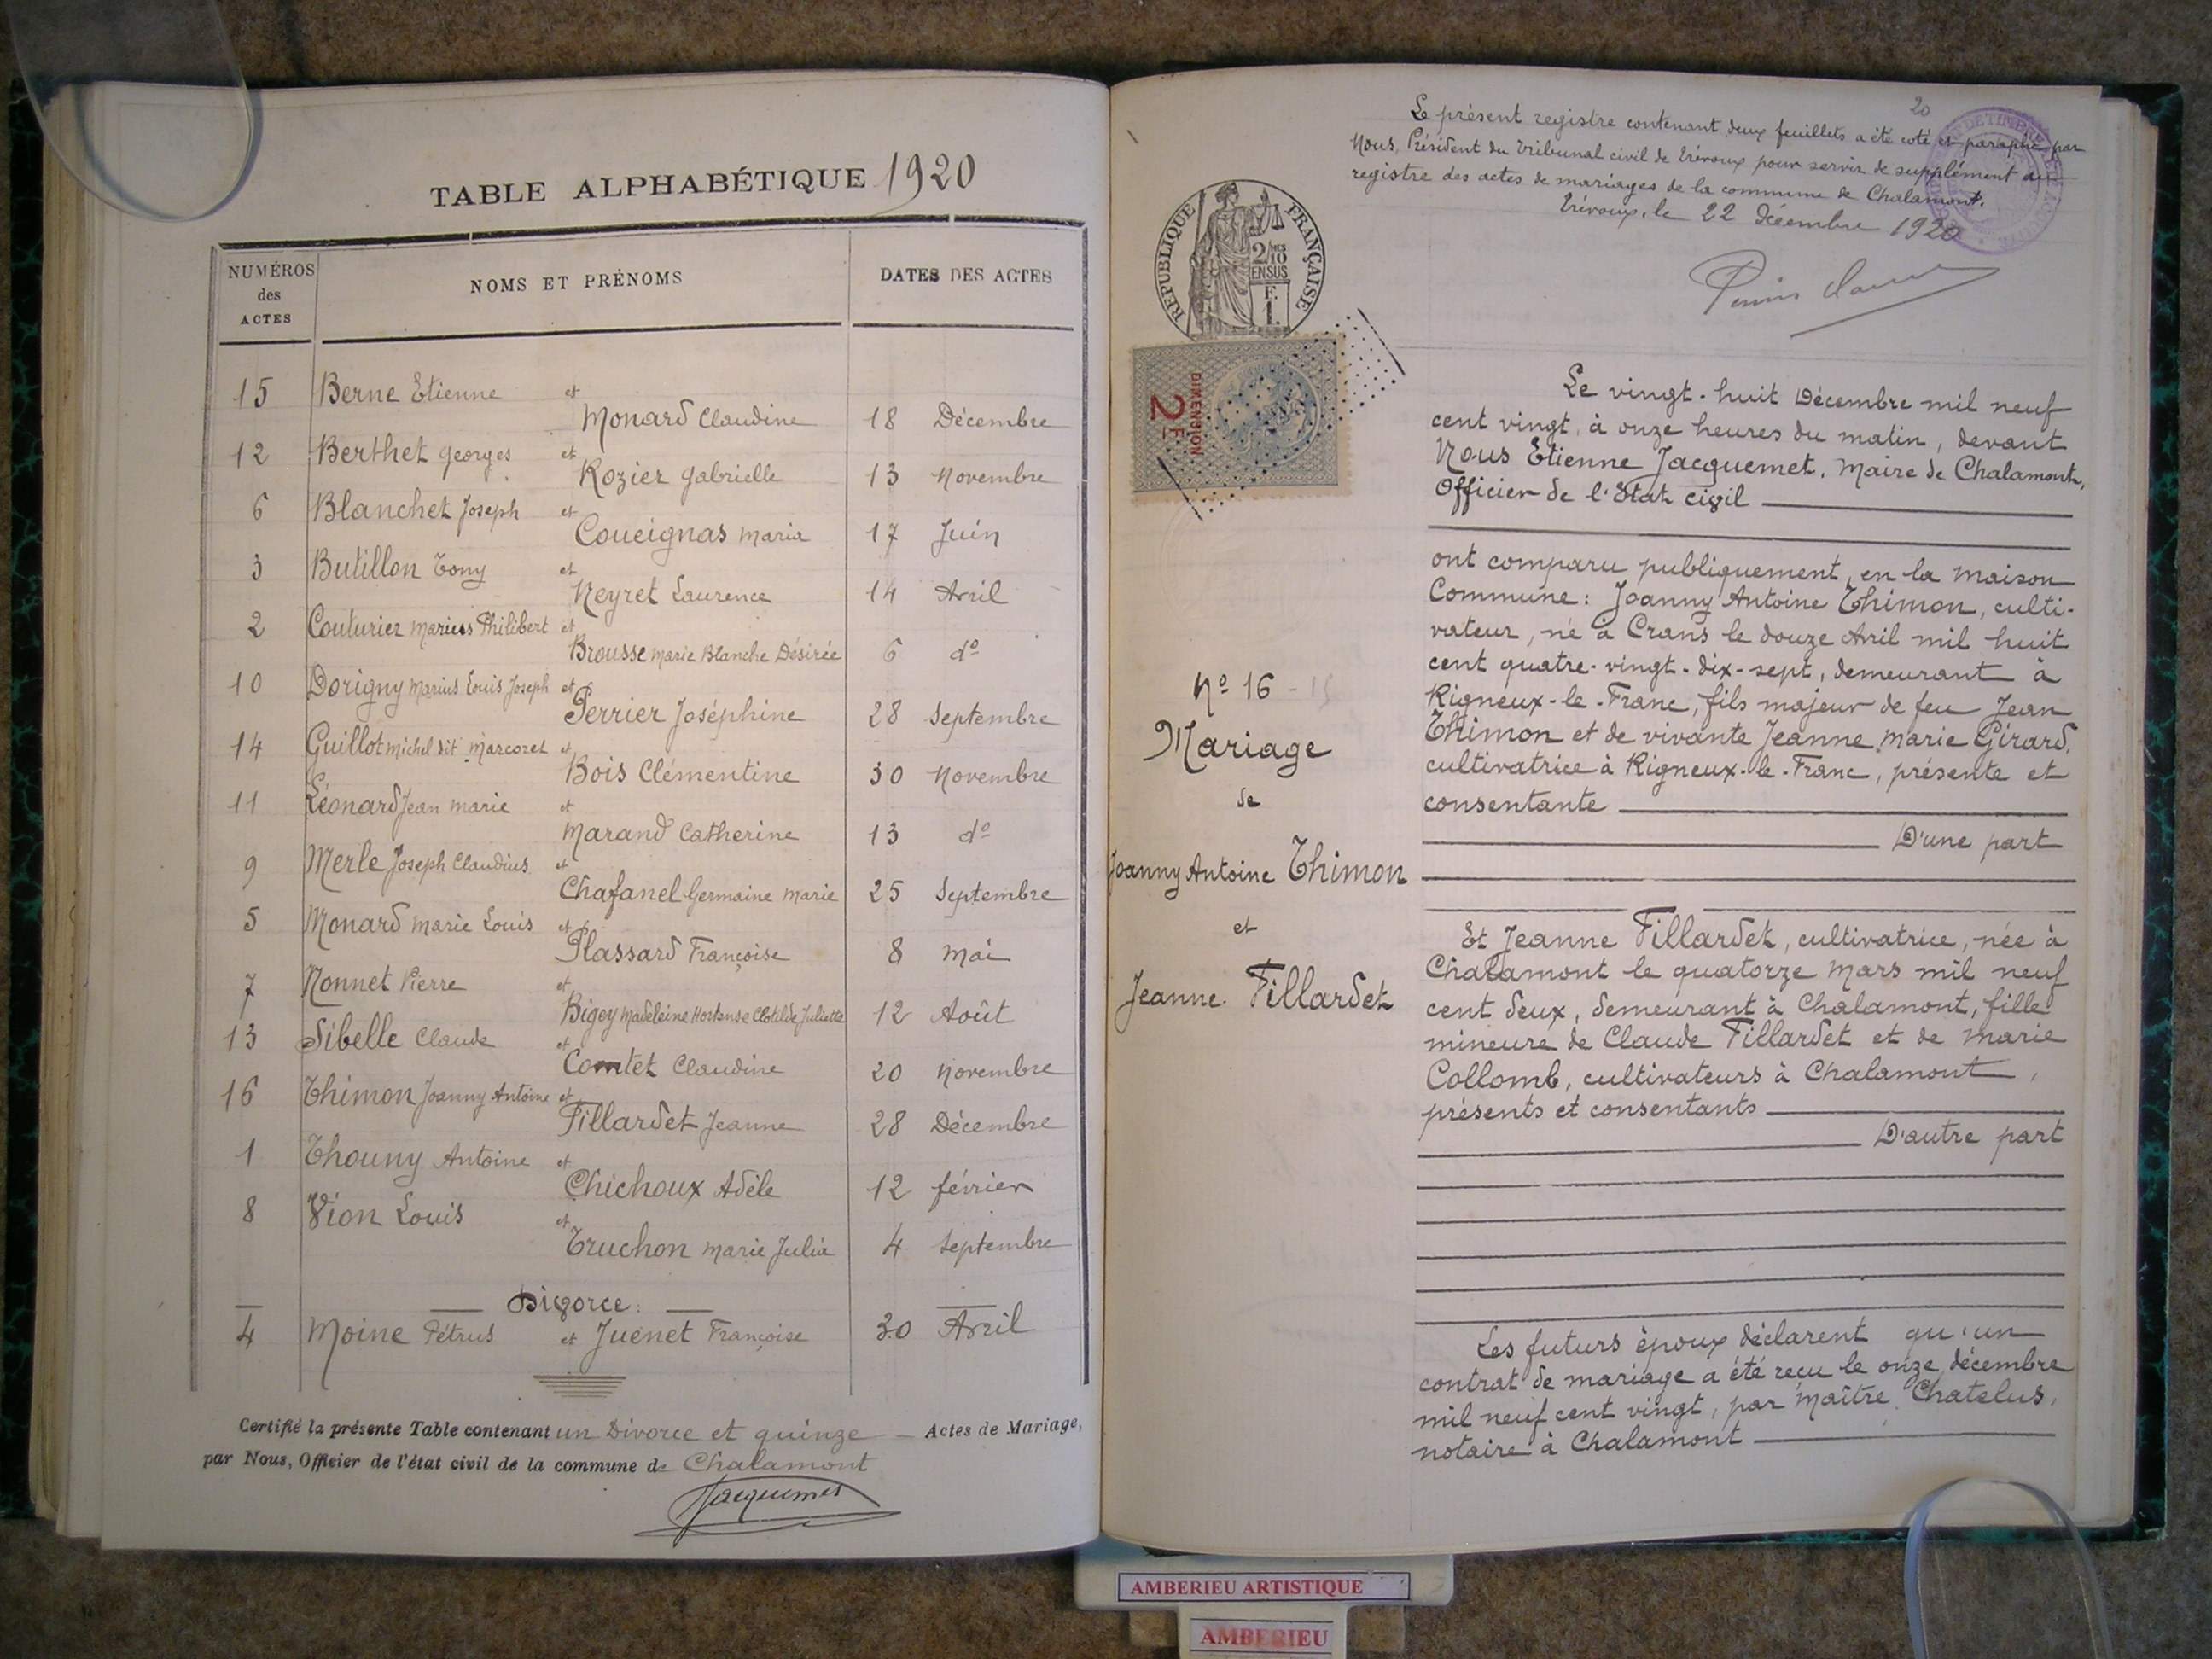 TABLE ALPHABÉTIQUE 1920
NUMÉROS des ACTES
NOMS ET PRÉNOMS
DATES DES ACTES
15 Berne Etienne et
Monard Claudine 18 Décembre
12 Berthet Georges et
Rozier Gabrielle 13 Novembre
6 Blanchet Joseph et
Coucignas Maria 17 Juin
3 Butillon Tony et
Neyret Laurence 14 Avril
2 Couturier Marius Philibert et
Brousse Marie Blanche Désirée 6 do
10 Dorigny Marius Louis Joseph et
Perrier Joséphine 28 Septembre
14 Guillot Michel dit Marcozet et
Bois Clémentine 30 Novembre
11 Léonard Jean Marie et
Marand Catherine 13 do
9 Merle Joseph Claudius et
Chafanel Germaine Marie 25 Septembre
5 Monard Marie Louis et
Plassard Françoise 8 Mai
7 Nonnet Pierre et
Bigey Madeleine Hortense Clotilde Juliette 12 Août
13 Sibelle Claude et
Comtet Claudine 20 Novembre
16 Thimon Joanny Antoine et
Fillardet Jeanne 28 Décembre
1 Thouny Antoine et
Chichoux Adèle 12 février
8 Vion Louis et
Truchon Marie Julie 4 Septembre
Divorce
4 Moine Pétrus et Juenet Françoise 30 Avril
Certifié la présente Table contenant un Divorce et quinze Actes de Mariage,
par Nous, Officier de l'état civil de la commune de Chalamont
Jacquemet
20
Le présent registre contenant deux feuillets a été coté et paraphé par
Nous, Président du Tribunal civil de Trévoux pour servir de supplément au
registre des actes de mariages de la commune de Chalamont.
Trévoux, le 22 décembre 1920
RÉPUBLIQUE FRANÇAISE
2/10 MES
EN SUS
F.
1.
DIMENSION
2F
No 16
Mariage
de
Joanny Antoine Thimon
et
Jeanne Fillardet
Le vingt-huit Décembre mil neuf
cent vingt, à onze heures du matin, devant
Nous Etienne Jacquemet, Maire de Chalamont,
Officier de l'Etat civil
ont comparu publiquement, en la maison
Commune: Joanny Antoine Thimon, culti-
vateur, né à Crans le douze Avril mil huit
cent quatre-vingt-dix-sept, demeurant à
Rigneux-le-Franc, fils majeur de feu Jean
Thimon et de vivante Jeanne Marie Girard,
cultivatrice à Rigneux-le-Franc, présente et
consentante
D'une part
Et Jeanne Fillardet, cultivatrice, née à
Chalamont le quatorze Mars mil neuf
cent deux, demeurant à Chalamont, fille
mineure de Claude Fillardet et de Marie
Collomb, cultivateurs à Chalamont,
présents et consentants
D'autre part
Les futurs époux déclarent qu'un
contrat de mariage a été reçu le onze décembre
mil neuf cent vingt, par Maître Chatelus,
notaire à Chalamont
AMBERIEU ARTISTIQUE
AMBERIEU